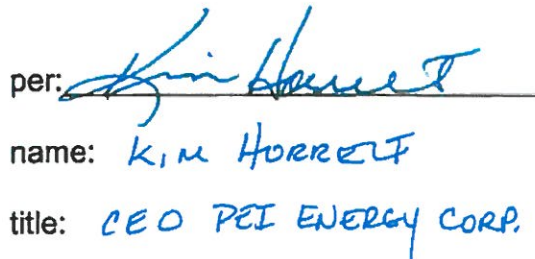 per: Kim Horrelt
name: KIM HORRELT
title: CEO PEI ENERGY CORP.